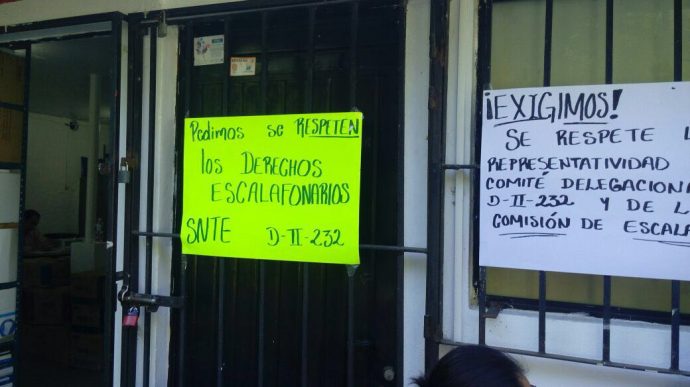 Pedimos se RESPETEN
los DERECHOS
ESCALAFONARIOS
SNTE D-II-232
¡EXIGIMOS!
SE RESPETE
REPRESENTATIVIDAD
COMITÉ DELEGACIONA
D-II-232 Y DE LA
COMISIÓN DE ESCALA